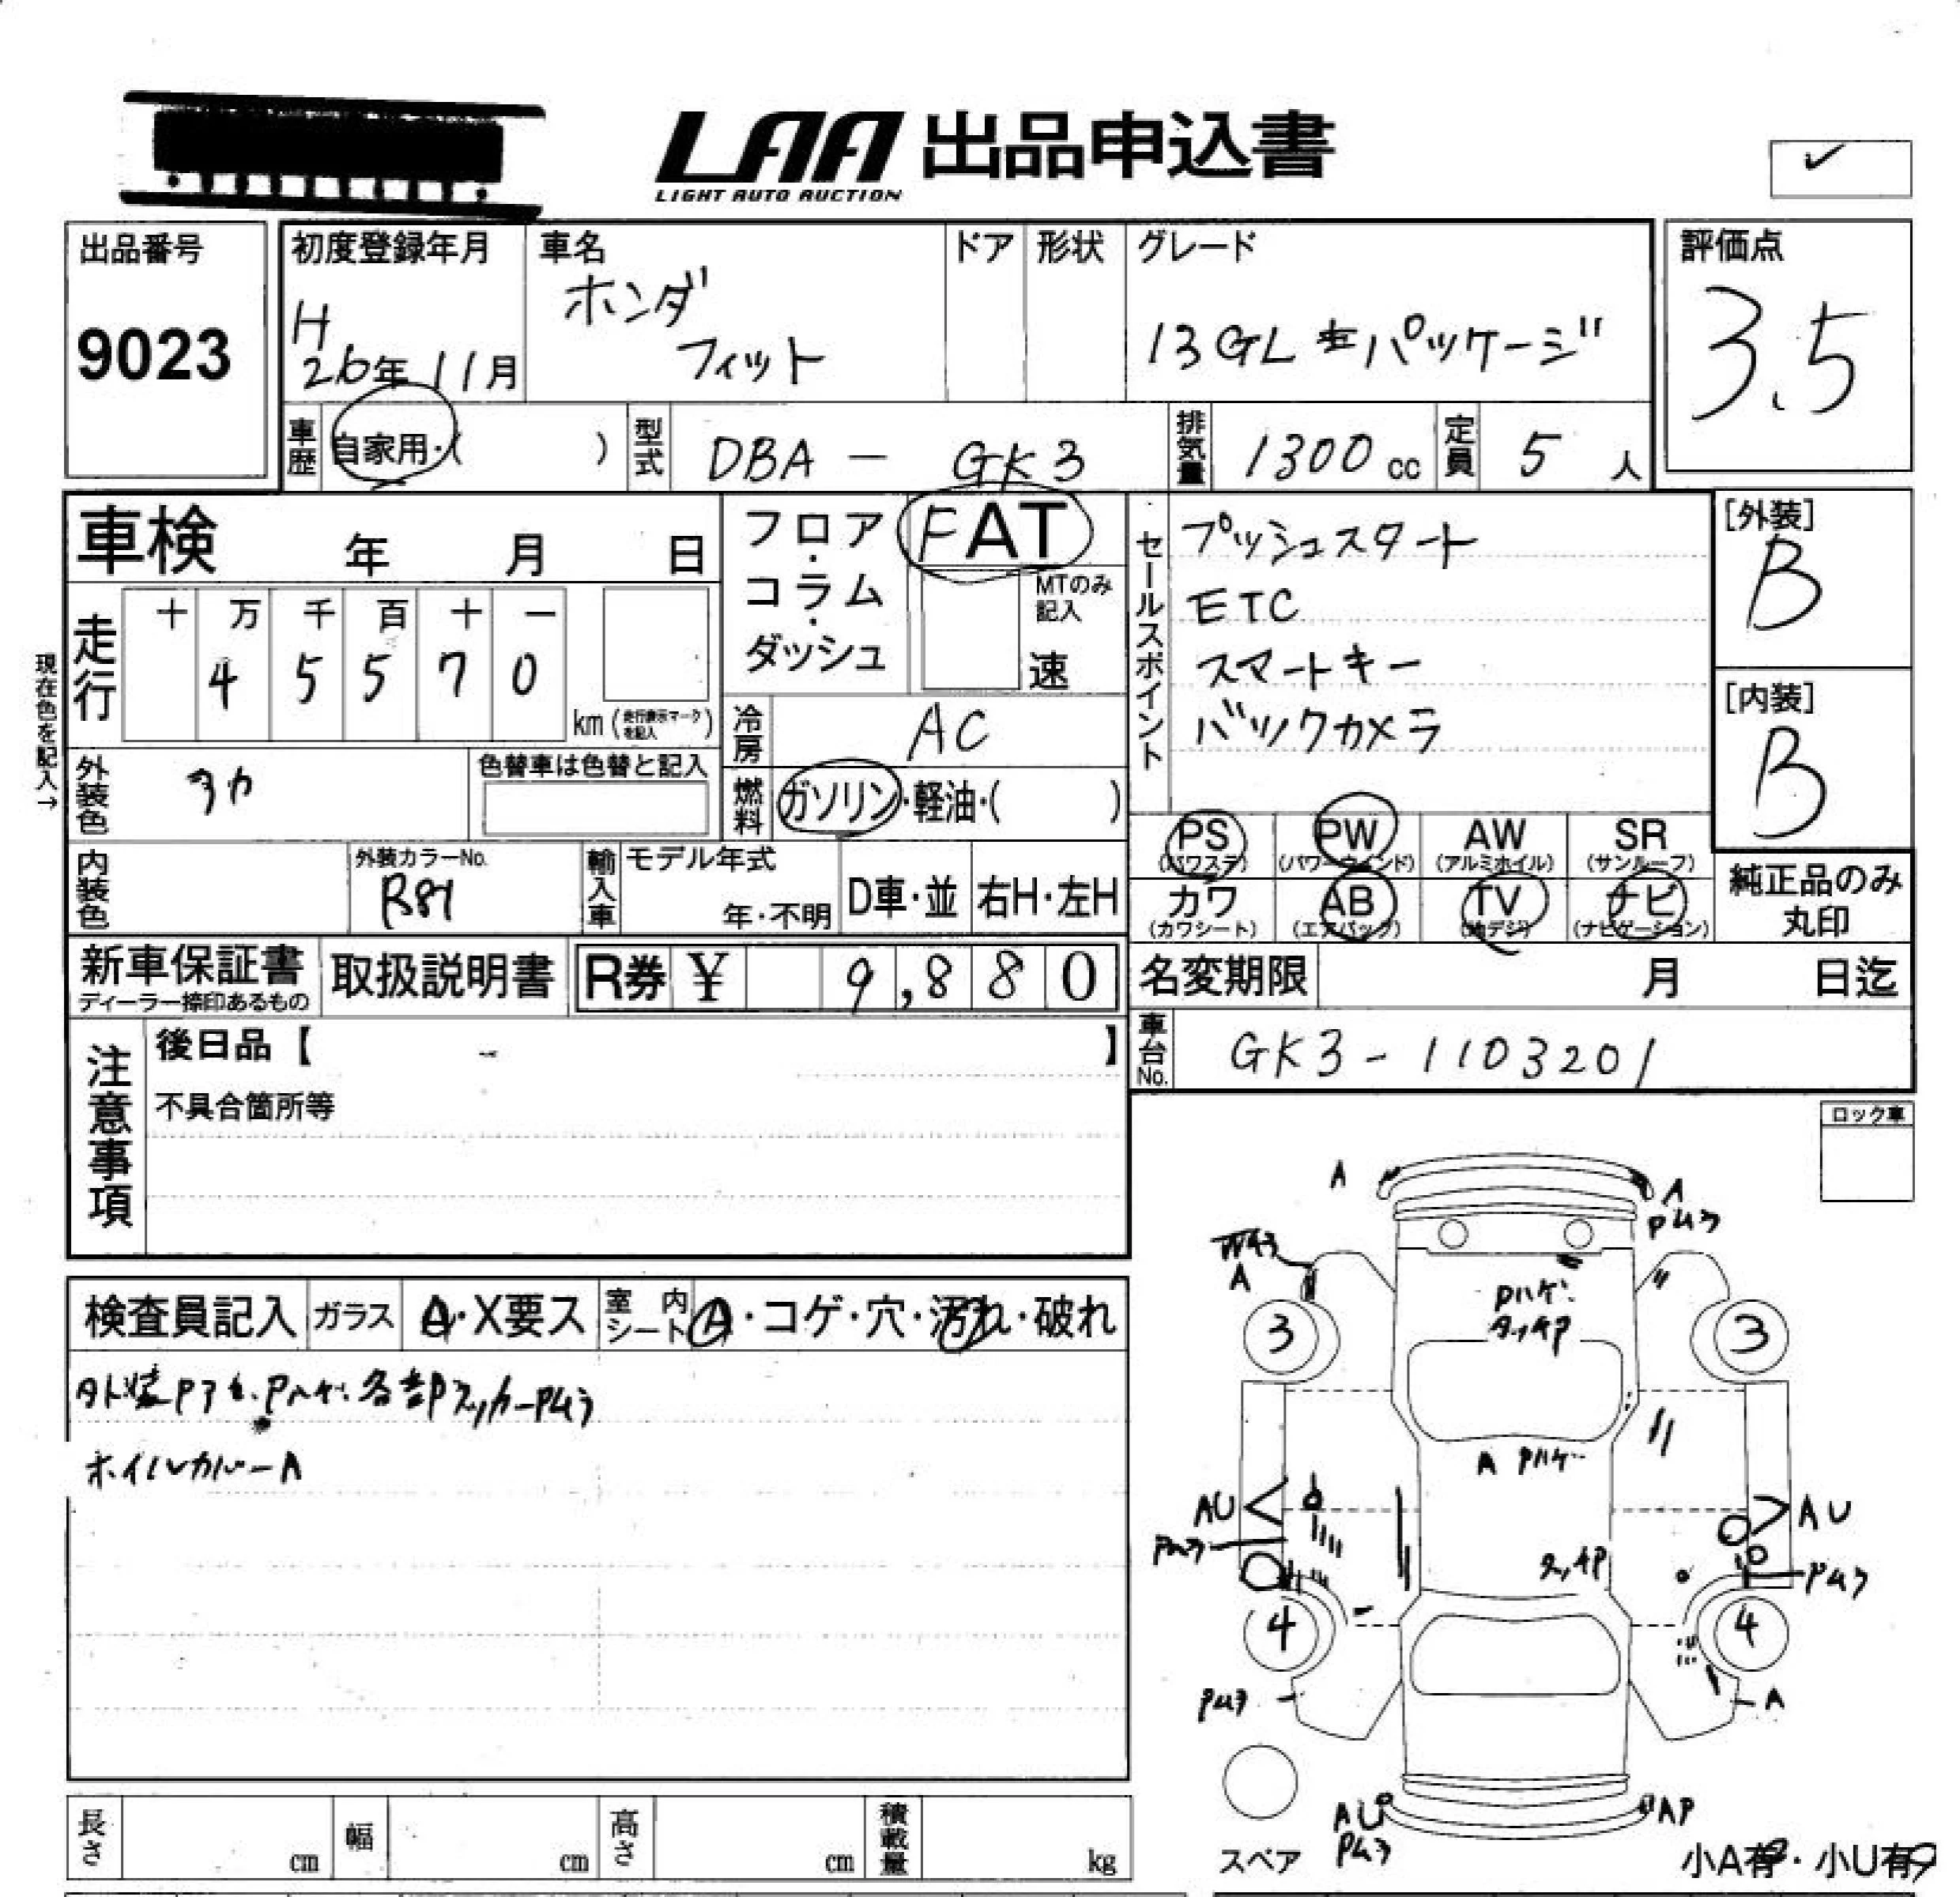 LAA 出品申込書
LIGHT AUTO AUCTION
出品番号
9023
初度登録年月
H
26年11月
車名
ホンダ
フィット
ドア
形状
グレード
13GL
パッケージ
評価点
3.5
車歴
自家用・( )
型式
DBA - GK3
排気量
1300cc
定員
5人
車検 年 月 日
フロア・コラム・ダッシュ
FAT
MTのみ記入
速
セールスポイント
プッシュスタート
ETC
スマートキー
バックカメラ
[外装]
B
[内装]
B
現在色を記入→
走行
十 万 千 百 十 一
4 5 5 7 0
km (走行表示マークを記入)
冷房
AC
外装色
色替車は色替と記入
燃料
ガソリン・軽油・( )
PS (パワステ)
PW (パワーウィンド)
AW (アルミホイル)
SR (サンルーフ)
カワ (カワシート)
AB (エアバッグ)
TV (地デジ)
ナビ (ナビゲーション)
純正品のみ
丸印
内装色
外装カラーNo.
R81
輸入車
モデル年式
年・不明
D車・並
右H・左H
新車保証書
ディーラー捺印あるもの
取扱説明書
R券 ¥ 9,880
名変期限 月 日迄
注意事項
後日品【 - 】
不具合箇所等
車台No.
GK3-1103201
ロック車
検査員記入
ガラス A・X要ス
室内シート A・コゲ・穴・汚れ・破れ
ホイルカバーA
A
A
A
Pハゲ
3
3
A Pハゲ
AU
AU
4
4
A
AU
AP
スペア
小A有・小U有
長さ cm
幅 cm
高さ cm
積載量 kg